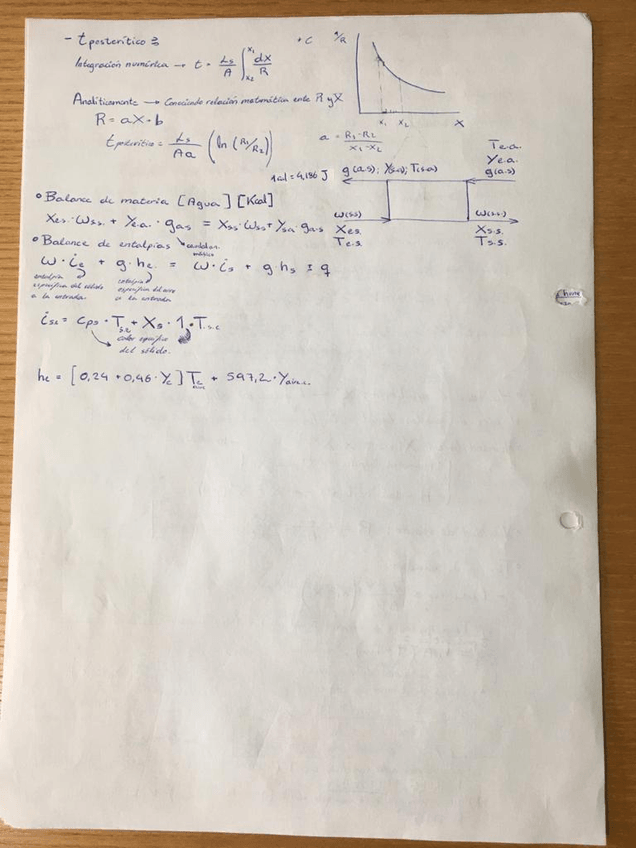 - tposterítico 3
Integración numérica → t = Ls/A ∫ x2 x1 dX/R
1/R
x1 x2 X
Analíticamente → Conociendo relación matemática entre R y X
R = aX + b
tposcrítico = Ls/Aa (ln (R1/R2))
a = R1-R2/x1-x2
1cal = 4,186 J
Te.a.
Ye.a.
g(a.s)
g(a.s); Y(s.a); T(s.a)
• Balance de materia [Agua] [Kcal]
Xe.s. · ωs.s. + Ye.a. · ga.s = Xs.s · ωs.s + Ys.a · ga.s
ω(s.s)
Xe.s.
Te.s.
ω(s.s.)
Xs.s.
Ts.s.
• Balance de entalpías
ω · ie + g · he = ω · is + g hs ± q
entalpía específica del sólido a la entrada.
entalpía específica del aire a la entrada
is.e = cps · Ts.e + Xs · 1 · Ts.e
calor específico del sólido.
he = [0,24 + 0,46 · Ye] Te + 597,2 · Y